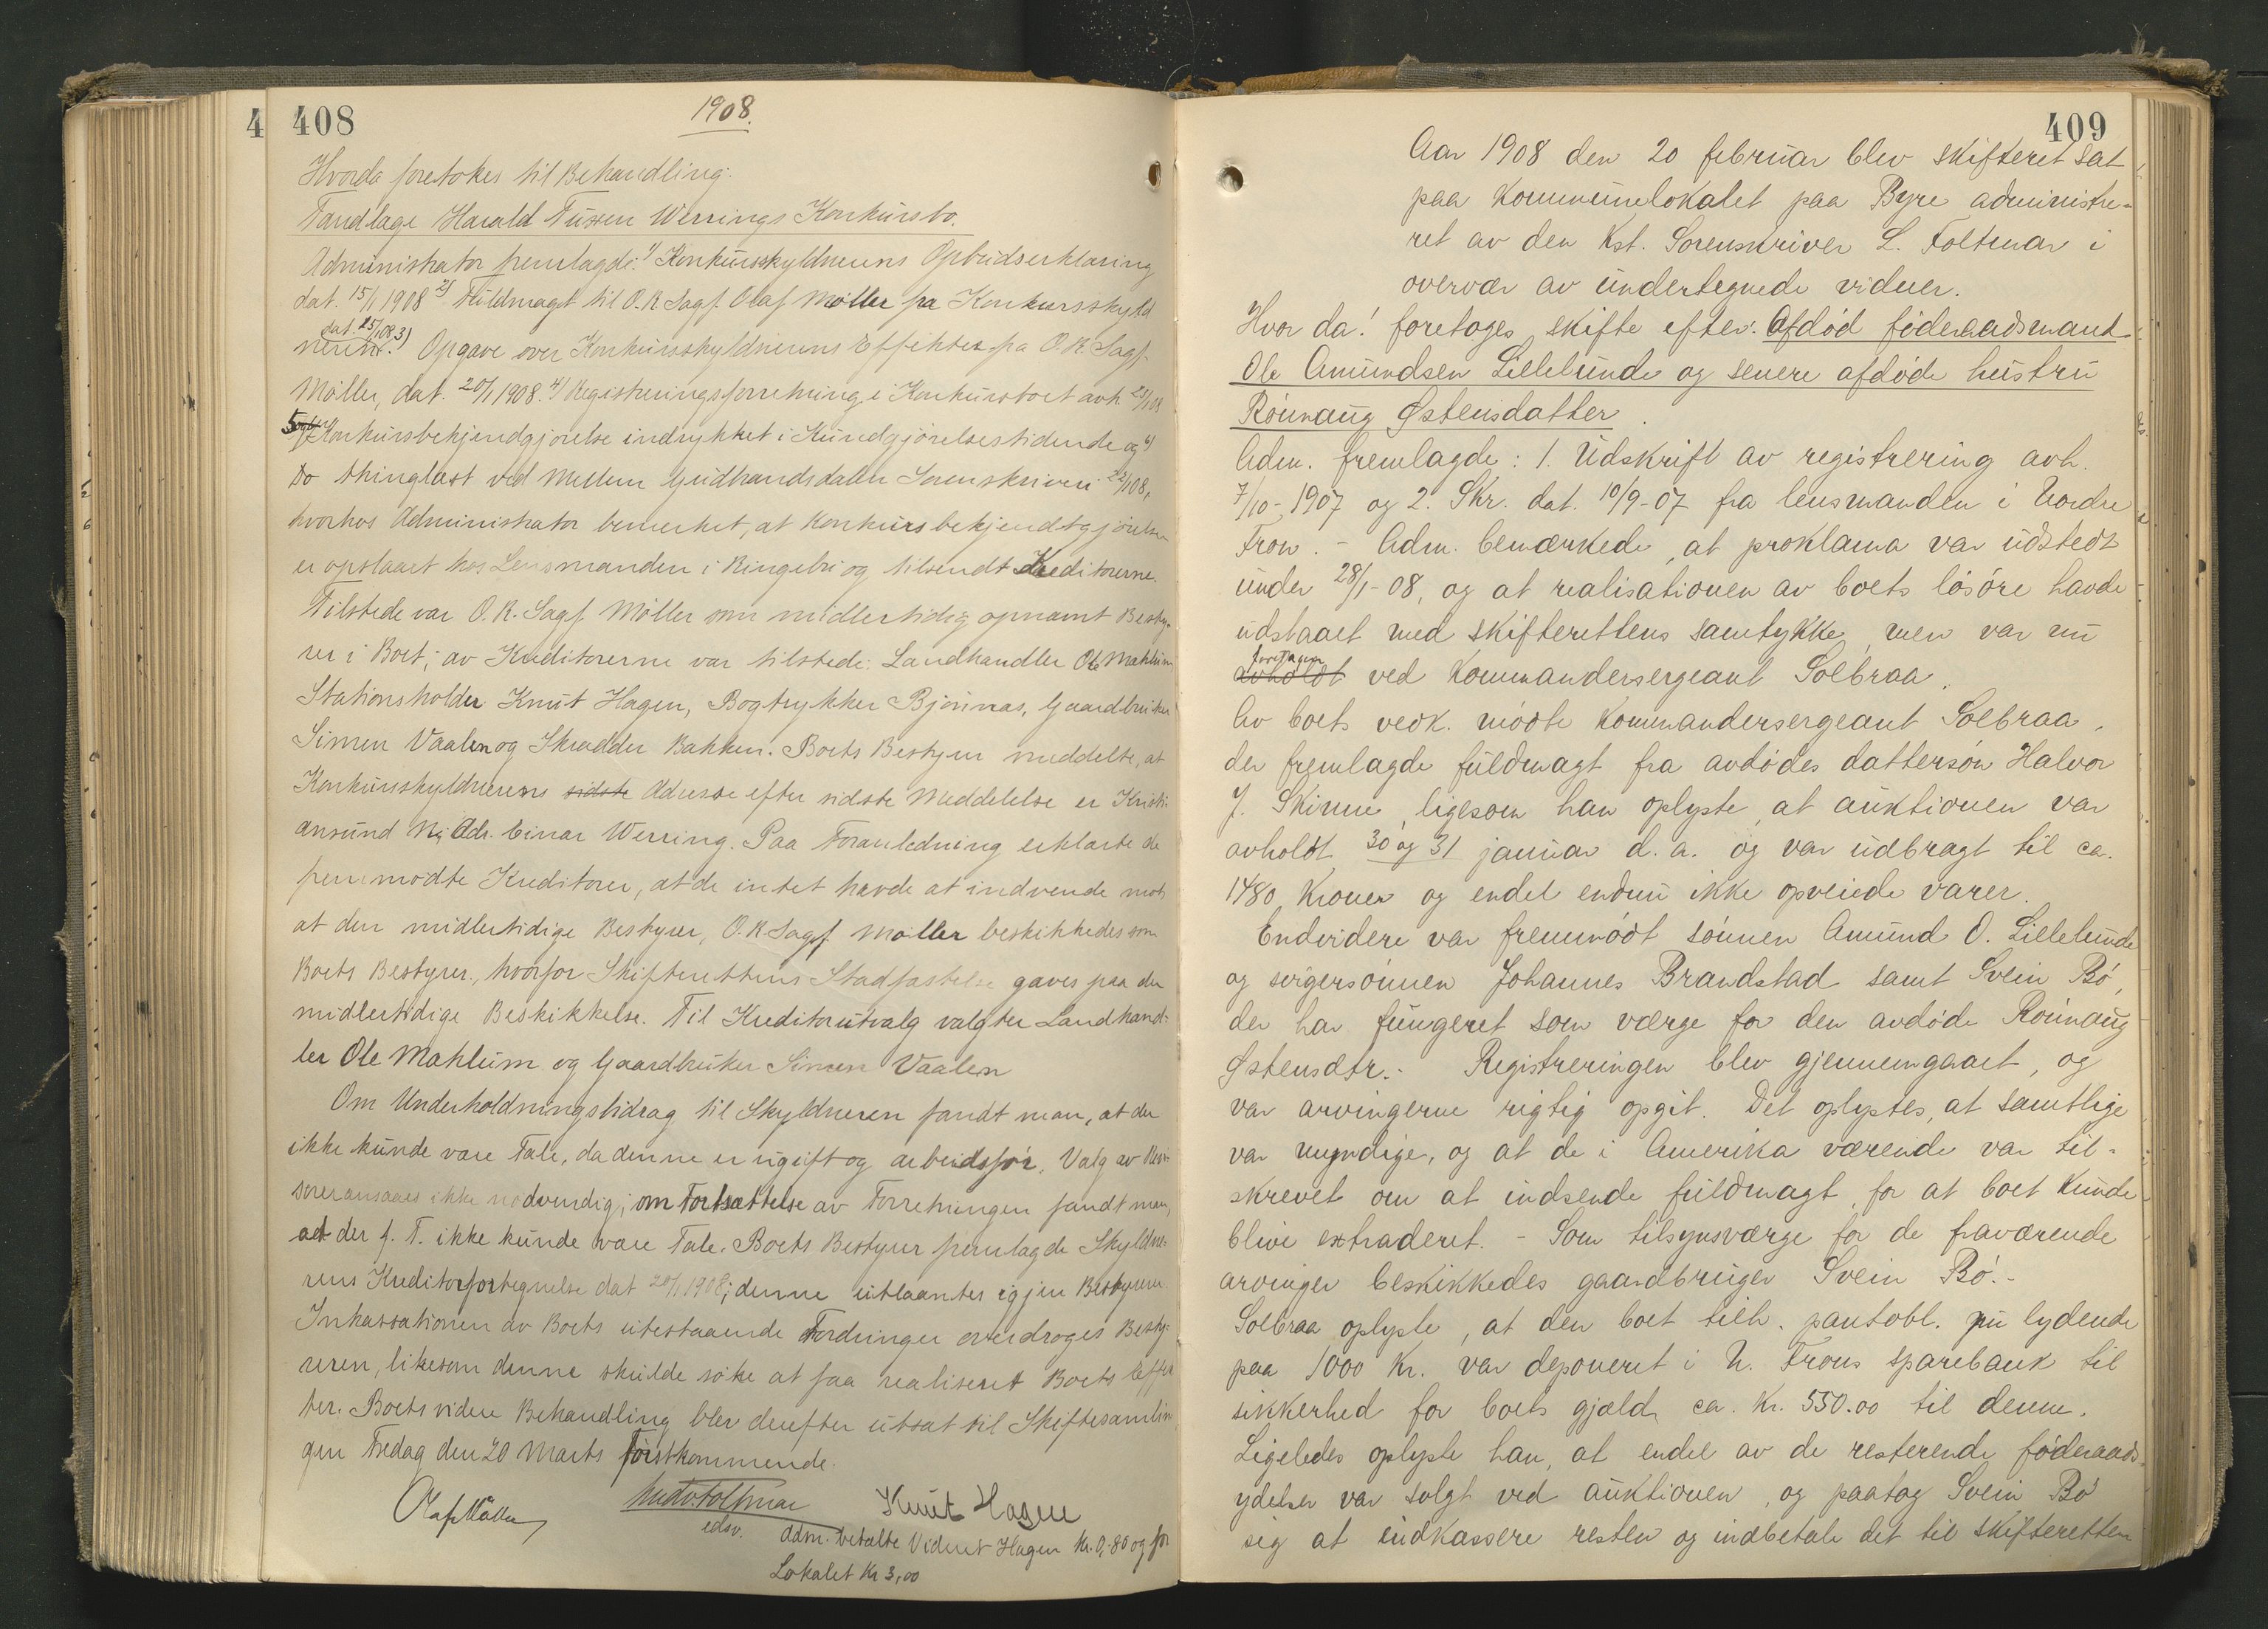 4 408
1908.
Hvorda foretokes til Behandling:
Tandlæge Harald Tussen Werrings Konkursbo.
Administrator fremlagde: 1) Konkursskyldnerens Opbudserklæring
dat. 15/1 1908 2) Fuldmagt til O.R. Sagf. Olaf Møller fra Konkursskyld
neren. dat. 25/1 08 3) Opgave over Konkursskyldnerens Effekter fra O.R. Sagf.
Møller, dat. 20/1 1908. 4) Registreringsforretning i Konkursboet avh. 23/1 08
5) Konkursbekjendgjørelse indrykket i Kundgjørelsestidende og 6)
Do thinglæst ved Mellem Gudbrandsdalen Sorenskriveri 22/1 08,
hvorhos Administrator bemerket, at Konkursbekjendtgjørelsen
er opslaaet hos Lensmanden i Ringebu og tilsendt Kreditorerne.
Tilstede var O.R. Sagf. Møller som midlertidig opnævnt Besty-
rer i Boet; av Kreditorerne var tilstede: Landhandler Ole Mæhlum
Stationsholder Knut Hagen, Bogtrykker Bjørnnæs, Gaardbruker
Simen Vaalen og Skrædder Bakken. Boets Bestyrer meddelte, at
Konkursskyldnerens sidste Adresse efter sidste Meddelelse er Kristi-
ansund N, Adr. Einar Werring. Paa Foranledning erklærte de
fremmødte Kreditorer, at de intet havde at indvende mot
at den midlertidige Bestyrer, O.R. Sagf. Møller beskikkedes som
Boets Bestyrer, hvorfor Skifterettens Stadfæstelse gaves paa den
midlertidige Beskikkelse. Til Kreditorutvalg valgtes Landhand-
ler Ole Mæhlum og Gaardbruker Simen Vaalen
Om Underholdningsbidrag til Skyldneren fandt man, at der
ikke kunde være Tale, da denne er ugift og arbeidsfør. Valg av Revi-
sorer ansaaes ikke nødvendig; om Fortsættelse av Forretningen fandt man,
at der f. T. ikke kunde være Tale. Boets Bestyrer fremlagde Skyldne-
rens Kreditorfortegnelse dat 20/1 1908; denne utlaantes igjen Bestyreren.
Inkassationen av Boets utestaaende Fordringer overdroges Besty-
reren, likesom denne skulde søke at faa realiseret Boets Effek
ter. Boets videre Behandling blev derefter utsat til Skiftesamlin
gen Fredag den 20 Marts førstkommende.
Olaf Møller Ludv. Foltmar Knut Hagen
edsv. Adm. betalte Vidnet Hagen Kr. 0,80 og for
Lokalet Kr 3,00
409
Aar 1908 den 20 februar blev skifteret sat
paa Kommunelokalet paa Byre administre-
ret av den Kst. Sorenskriver L. Foltmar i
overvær av undertegnede vidner.
Hvor da! foretoges skifte efter: Afdød føderaadsmand
Ole Amundsen Lillelunde og senere afdøde hustru
Rønnaug Østensdatter.
Adm. fremlagde: 1. Udskrift av registrering avh.
7/10-1907 og 2. Skr. dat. 10/9-07 fra lensmanden i Nordre
Fron. - Adm. bemærkede, at proklama var udstedt
under 28/1-08, og at realisationen av boets løsøre havde
udstaaet med skifterettens samtykke, men var nu
foretagen
avholdt ved Kommandersergeant Solbraa.
Av boets vedk. mødte Kommandersergeant Solbraa,
der fremlagde fuldmagt fra avdødes dattersøn Halvor
J. Skinne, ligesom han oplyste, at auktionen var
avholdt 30 og 31 januar d.a. og var udbragt til ca.
1480 Kroner og endel endnu ikke opveiede varer.
Endvidere var fremmødt sønnen Amund O. Lillelunde
og svigersønnen Johannes Brandstad samt Svein Bø,
der har fungeret som værge for den avdøde Rønnaug
Østensdtr. - Registreringen blev gjennemgaaet, og
var arvingerne rigtig opgit. Det oplystes, at samtlige
var myndige, og at de i Amerika værende var til-
skrevet om at indsende fuldmagt, for at boet kunde
blive extraderet. - Som tilsynsværge for de fraværende
arvinger beskikkedes gaardbruger Svein Bø. -
Solbraa oplyste, at den boet tilh. pantobl. nu lydende
paa 1000 Kr. var deponeret i N. Frons sparebank til
sikkerhed for boets gjæld ca. Kr. 550.00 til denne.
Ligeledes oplyste han, at endel av de resterende føderaads-
ydelser var solgt ved auktionen, og paatog Svein Bø
sig at indkassere resten og indbetale det til skifteretten